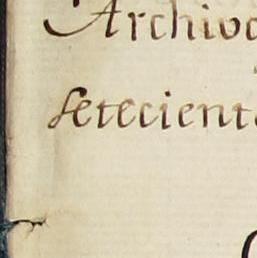 Archivo
setecient